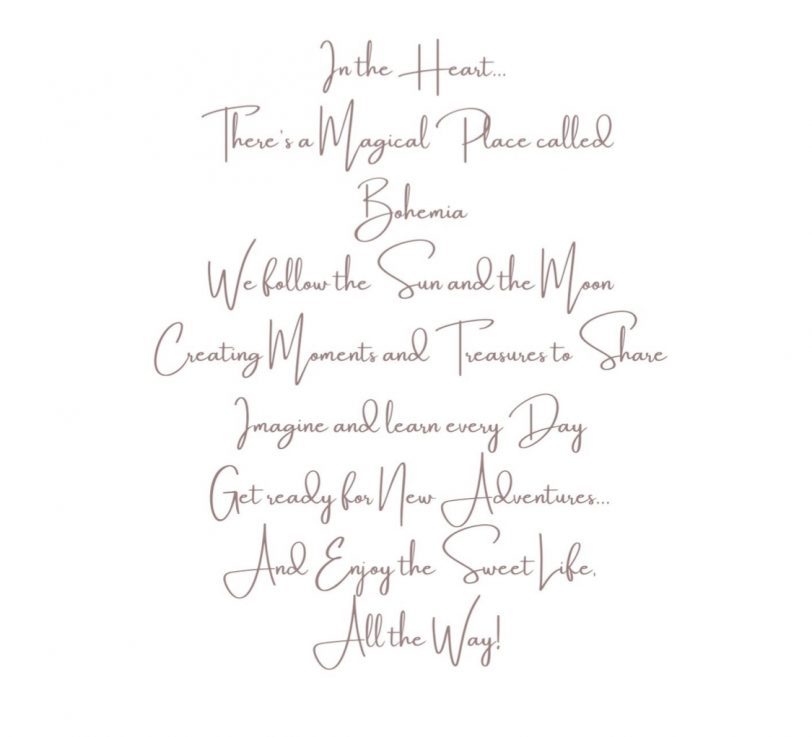 In the Heart...
There's a Magical Place called
Bohemia
We follow the Sun and the Moon
Creating Moments and Treasures to Share
Imagine and learn every Day
Get ready for New Adventures...
And Enjoy the Sweet Life,
All the Way!